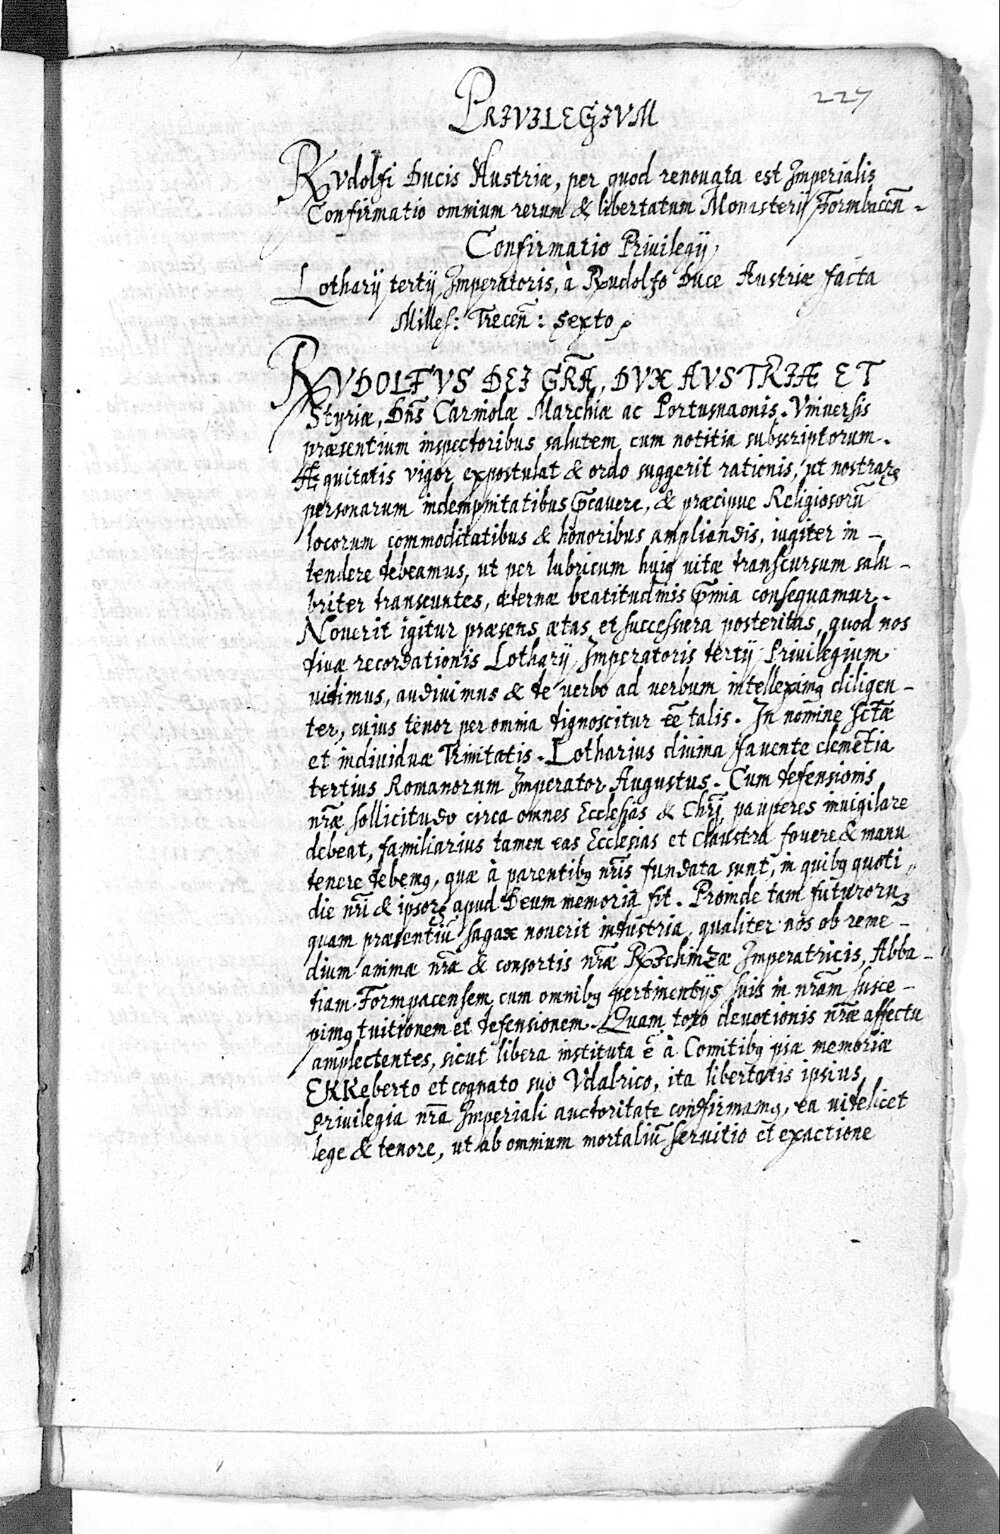 227
PRIVILEGIVM
RVdolfi Ducis Austriæ, per quod renouata est Imperialis
Confirmatio omnium rerum & libertatum Monasterij Formbacen̄ -
Confirmatio Priuilegij,
Lotharij tertij Imperatoris, à Roudolfo Duce Austriæ facta
Milles: Trecen̄: sexto.
RVDOLFVS DEI GR̄A, DVX AVSTRIÆ ET
Styriæ, Dn̄s Carniolæ Marchiæ ac Portusnaonis. Vniuersis
præsentium inspectoribus salutem cum notitia subscriptorum.
Æquitatis vigor expostulat & ordo suggerit rationis, ut nostrarꝝ
personarum indempnitatibus Cauere, & præcipue Religiosorū
locorum commoditatibus & honoribus ampliandis, iugiter in -
tendere debeamus, ut per lubricum huiꝰ uitæ transcursum salu -
briter transeuntes, æternæ beatitudinis Gmia consequamur.
Nouerit igitur præsens ætas et successura posteritas, quod nos
diuæ recordationis Lotharij Imperatoris tertij Priuilegium
uidimus, audiuimus & de verbo ad uerbum intelleximꝰ diligen -
ter, cuius tenor per omnia dignoscitur ēē talis. In nomine sctæ
et indiuiduæ Trinitatis. Lotharius diuina fauente clemētia
tertius Romanorum Imperator Augustus. Cum defensionis
nr̄æ sollicitudo circa omnes Ecclesias & Chrī pauperes inuigilare
debeat, familiarius tamen eas Ecclesias et Claustra fouere & manu
tenere debemꝰ, quæ à parentibꝰ nr̄is fundata sunt, in quibꝰ quoti
die nr̄i & ipsorꝝ apud Deum memoria fit. Proinde tam futurorū
quam præsentiū sagax nouerit industria, qualiter nos ob reme -
dium animæ nr̄æ & consortis nr̄æ RIchinzæ Imperatricis, Abba -
tiam Formpacensem cum omnibꝰ pertinentijs suis in nr̄am susce -
pimꝰ tuitionem et defensionem. Quam toto deuotionis nr̄æ affectu
amplectentes, sicut libera instituta ē à Comitibꝰ piæ memoriæ
EKKeberto et cognato suo Vdalrico, ita libertatis ipsius
priuilegia nr̄a Imperiali auctoritate confirmamꝰ, ea uidelicet
lege & tenore, ut ab omnium mortaliū seruitio et exactione